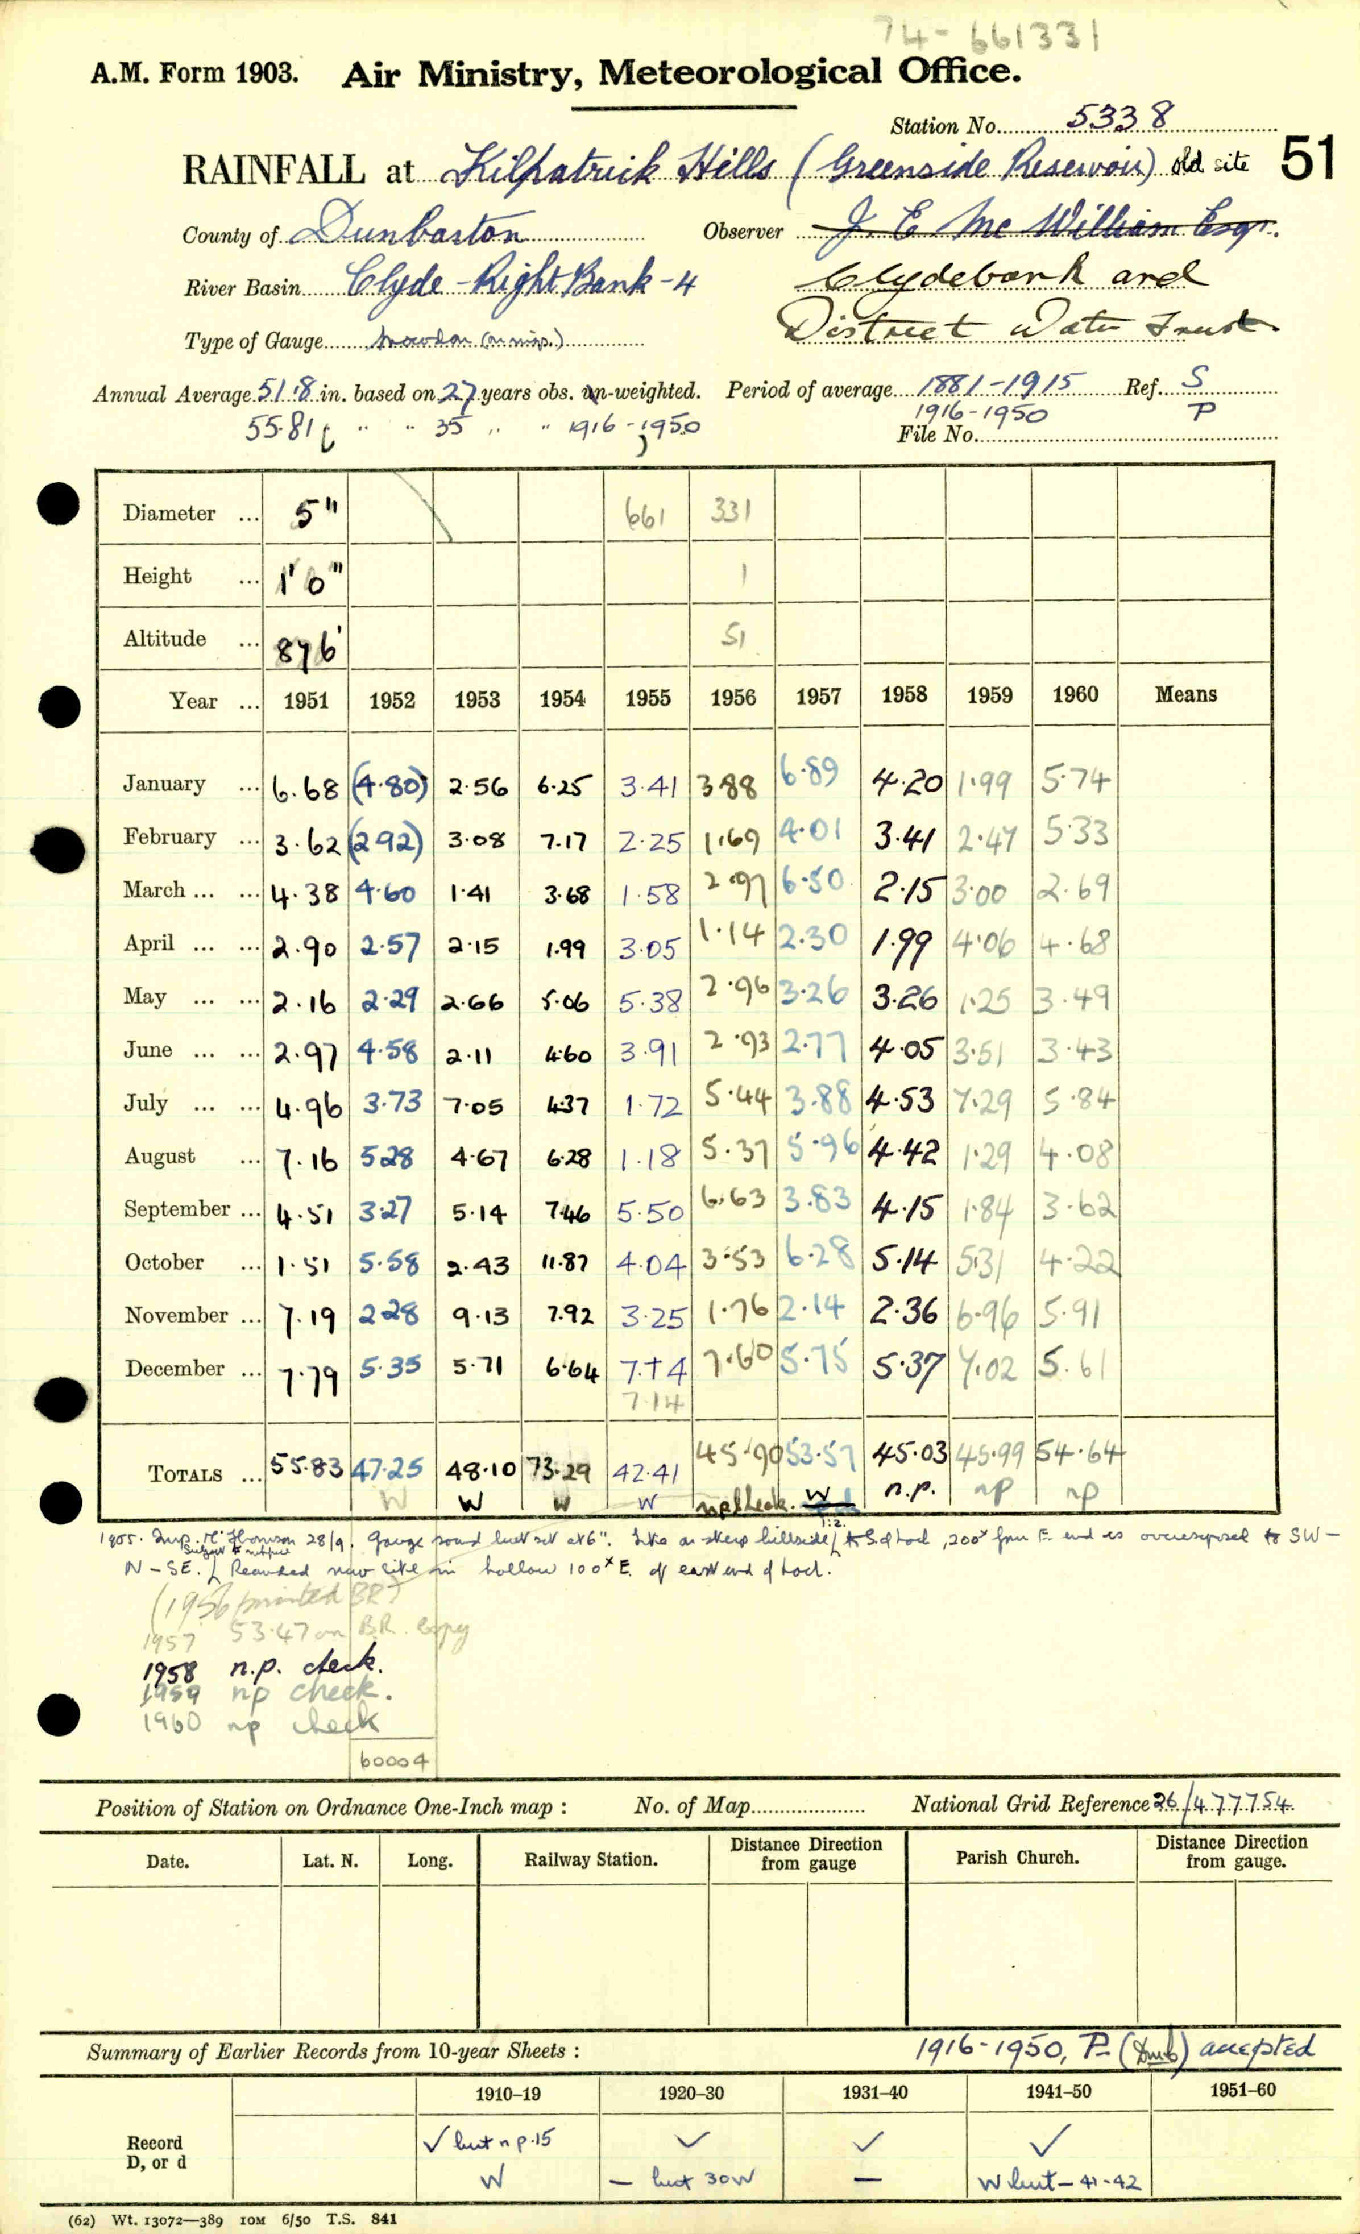 74-661331
A.M. Form 1903. Air Ministry, Meteorological Office.
Station No. 5338
RAINFALL at Kilpatrick Hills (Greenside Reservoir) old site 51
County of Dunbarton Observer J. E. Mc William Esqr.
River Basin Clyde - Right Bank - 4 Clydebank and
Type of Gauge Snowdon (on insp.) District Water Trust
Annual Average 51.8 in. based on 27 years obs. un-weighted. Period of average 1881-1915 Ref. S
55.81 " " 35 " " 1916-1950 1916-1950 P
File No.
Diameter ... 5" 661 331
Height ... 1' 0" 1
Altitude ... 876' 51
Year ... 1951 1952 1953 1954 1955 1956 1957 1958 1959 1960 Means
January ... 6.68 (4.80) 2.56 6.25 3.41 3.88 6.89 4.20 1.99 5.74
February ... 3.62 (2.92) 3.08 7.17 2.25 1.69 4.01 3.41 2.47 5.33
March ... ... 4.38 4.60 1.41 3.68 1.58 2.97 6.50 2.15 3.00 2.69
April ... ... 2.90 2.57 2.15 1.99 3.05 1.14 2.30 1.99 4.06 4.68
May ... ... 2.16 2.29 2.66 5.06 5.38 2.96 3.26 3.26 1.25 3.49
June ... ... 2.97 4.58 2.11 4.60 3.91 2.93 2.77 4.05 3.51 3.43
July ... ... 4.96 3.73 7.05 4.37 1.72 5.44 3.88 4.53 7.29 5.84
August ... 7.16 5.28 4.67 6.28 1.18 5.37 5.96 4.42 1.29 4.08
September ... 4.51 3.27 5.14 7.46 5.50 6.63 3.83 4.15 1.84 3.62
October ... 1.51 5.58 2.43 11.87 4.04 3.53 6.28 5.14 5.31 4.22
November ... 7.19 2.28 9.13 7.92 3.25 1.76 2.14 2.36 6.96 5.91
December ... 7.79 5.35 5.71 6.64 7.14 7.60 5.75 5.37 7.02 5.61
7.14
TOTALS ... 55.83 47.25 48.10 73.29 42.41 45.90 53.57 45.03 45.99 54.64
W W W W np check. W n.p. np np
1955. Insp. Mr Thomson 28/9. Gauge sound but set at 6". Site on steep hillside to S of Loch, 200x from E. end is overexposed to SW -
N - SE. Recorded new site in hollow 100x E. of east end of Loch.
(1956 printed BR)
1957 53.47 on B.R. copy
1958 n.p. check.
1959 np check.
1960 np check
60004
Position of Station on Ordnance One-Inch map : No. of Map National Grid Reference 26/477754
Date. Lat. N. Long. Railway Station. Distance from gauge Direction Parish Church. Distance Direction from gauge.
Summary of Earlier Records from 10-year Sheets : 1916-1950, P accepted
1910–19 1920–30 1931–40 1941–50 1951–60
Record ✓ but n p. 15 ✓ ✓ ✓
D, or d W - but 30W - W but - 41-42
(62) Wt. 13072—389 10M 6/50 T.S. 841